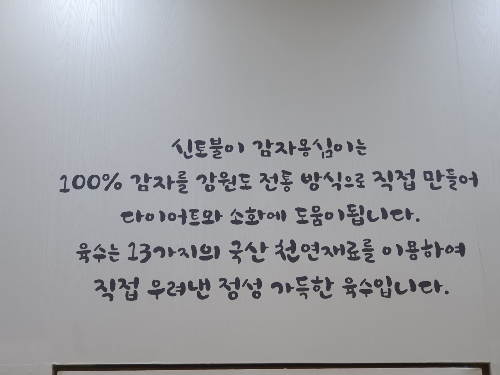 신토불이 감자옹심이는
100% 감자를 강원도 전통 방식으로 직접 만들어
다이어트와 소화에 도움이됩니다.
육수는 13가지의 국산 천연재료를 이용하여
직접 우려낸 정성 가득한 육수입니다.